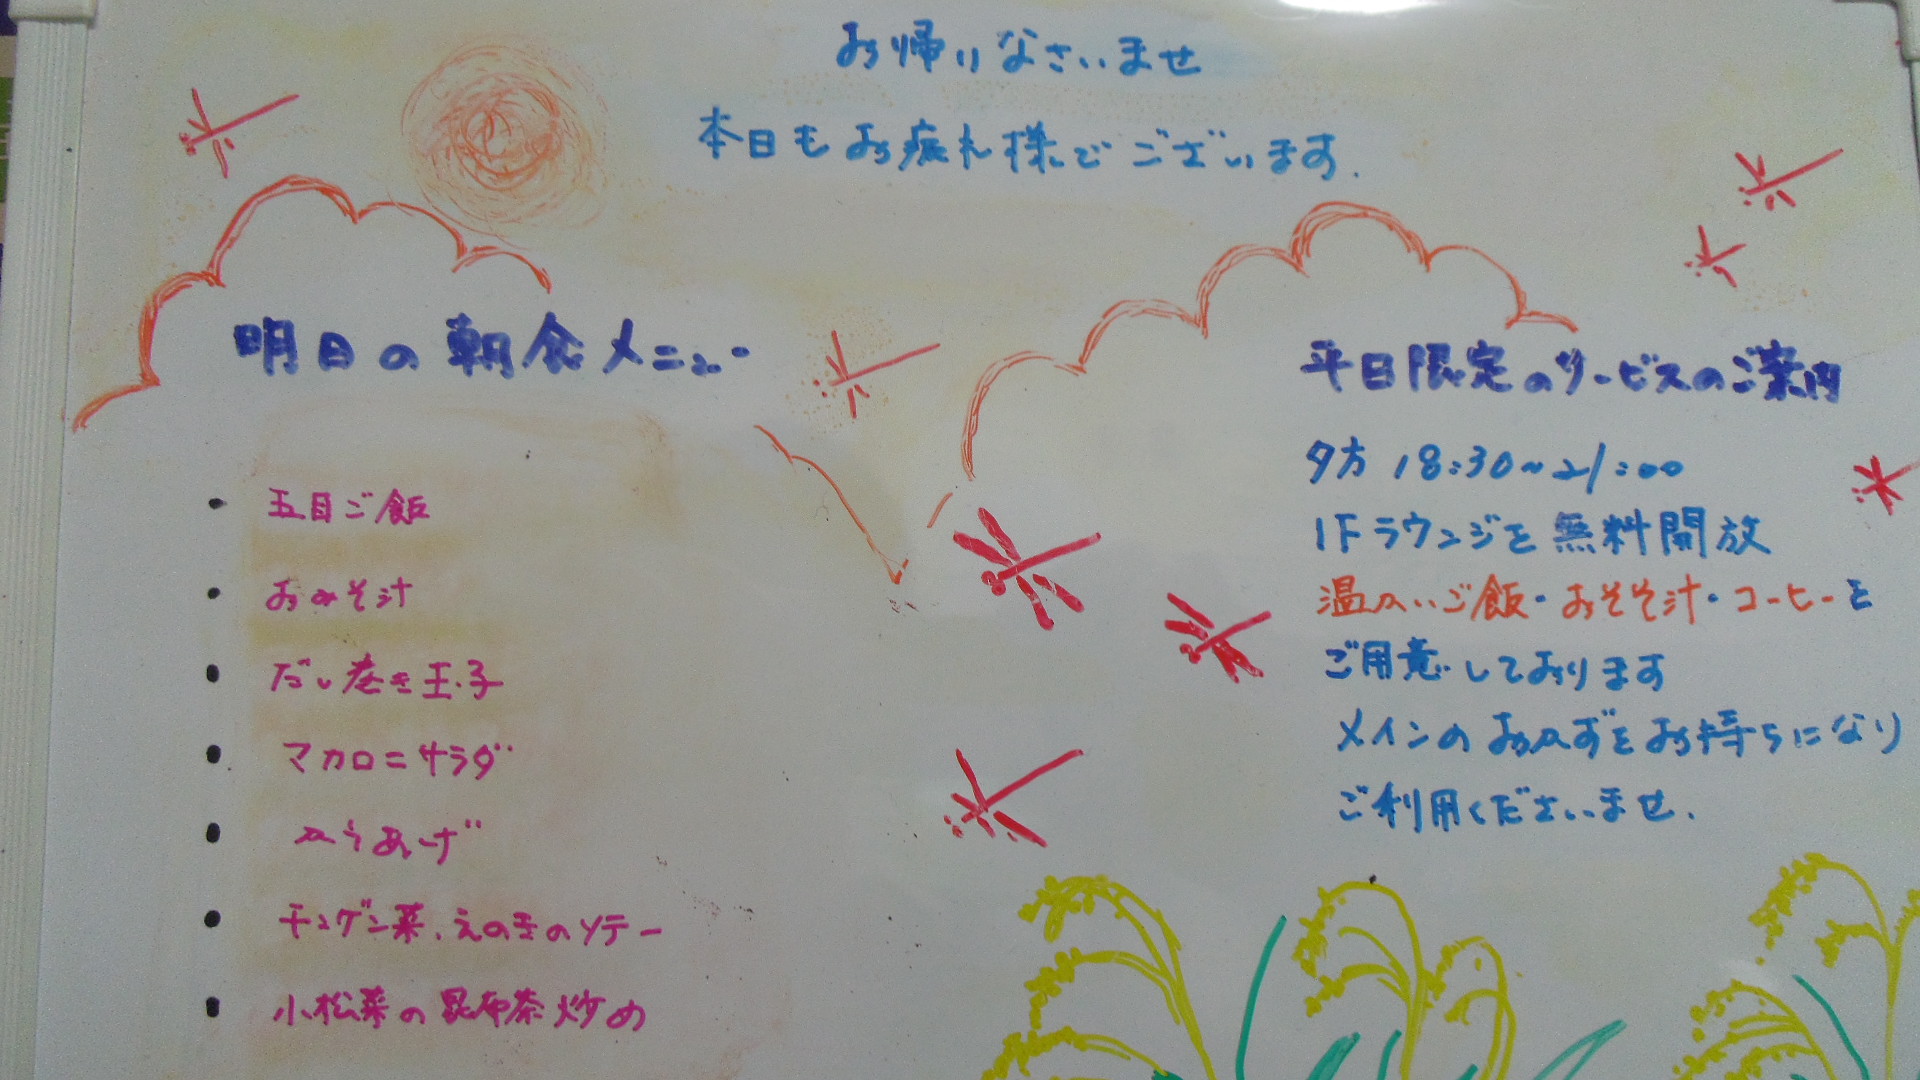 お帰りなさいませ
本日もお疲れ様でございます.
明日の朝食メニュー
・五目ご飯
・おみそ汁
・だし巻き玉子
・マカロニサラダ
・からあげ
・チンゲン菜、えのきのソテー
・小松菜の昆布茶炒め
平日限定のサービスのご案内
夕方 18:30~21:00
1Fラウンジを無料開放
温かいご飯・おそそ汁・コーヒーを
ご用意しております
メインのおかずをお持ちになり
ご利用くださいませ.